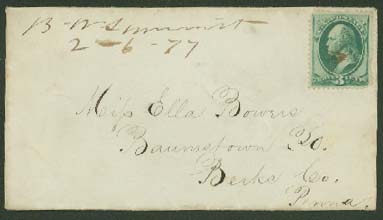 2-6-77
Miss Ella Bowers
Baumstown Po.
Berks Co.
Penna.
3